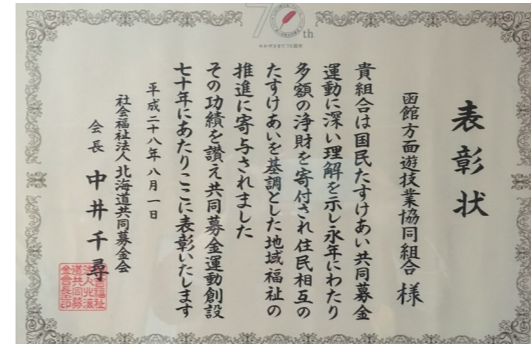 70th
表彰状
函館方面遊技業協同組合 様
貴組合は国民たすけあい共同募金
運動に深い理解を示し永年にわたり
多額の浄財を寄付され住民相互の
たすけあいを基調とした地域福祉の
推進に寄与されました
その功績を讃え共同募金運動創設
七十年にあたりここに表彰いたします
平成二十八年八月一日
社会福祉法人 北海道共同募金会
会長 中井千尋